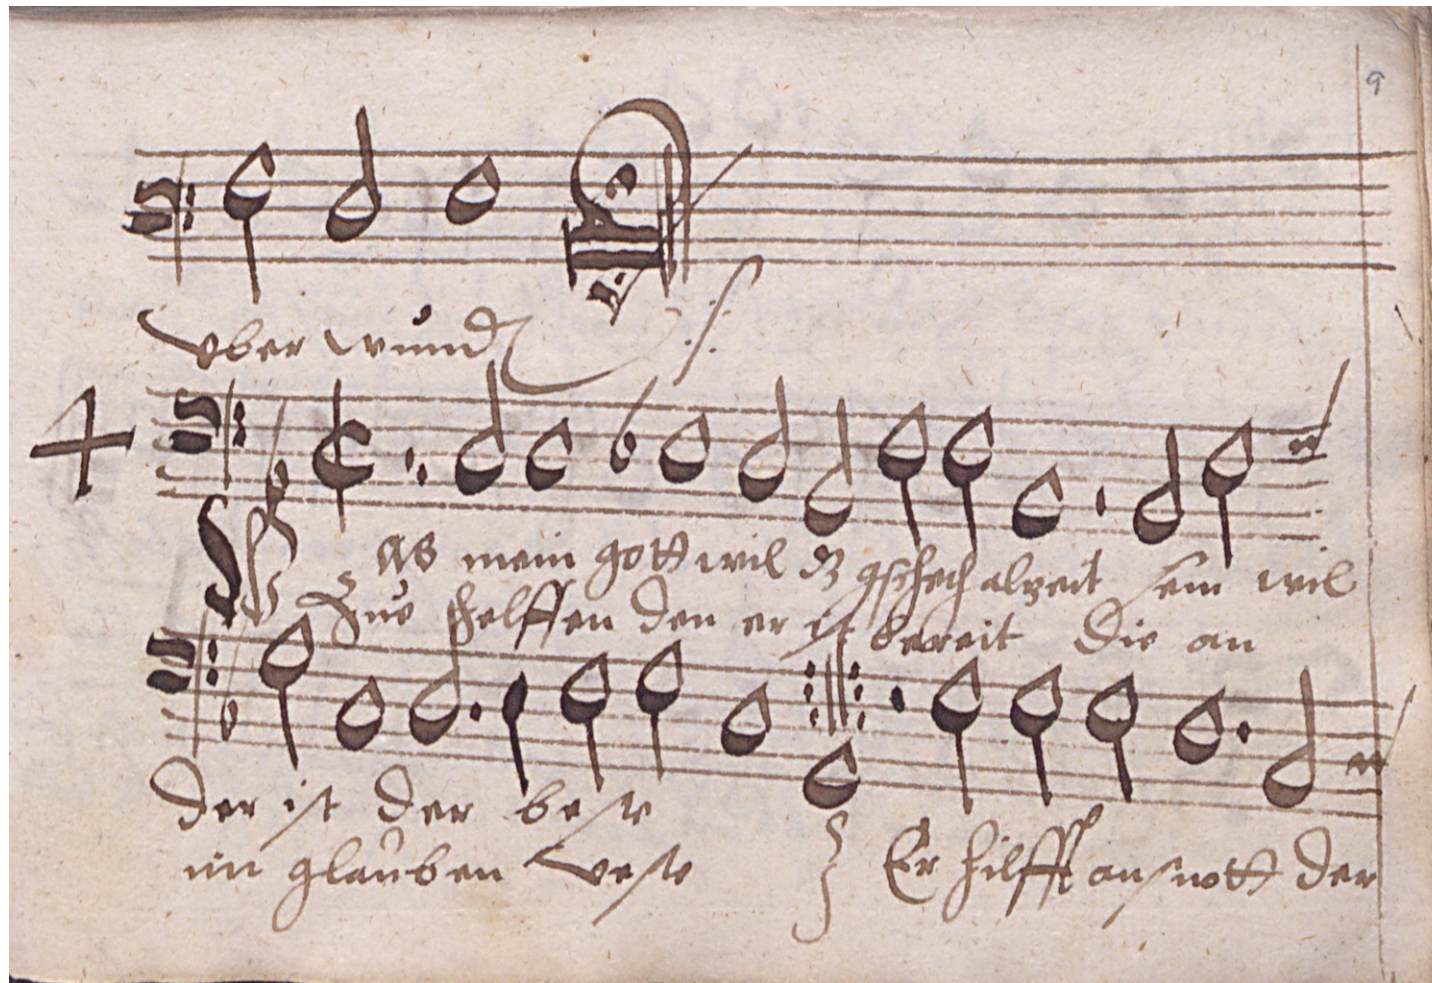 9
vber wund
Was mein gott wil dz gschech alzeit sein wil
Zue helffen den er ist bereit Die an
der ist der beste
im glauben veste
Er hilfft aus nott der